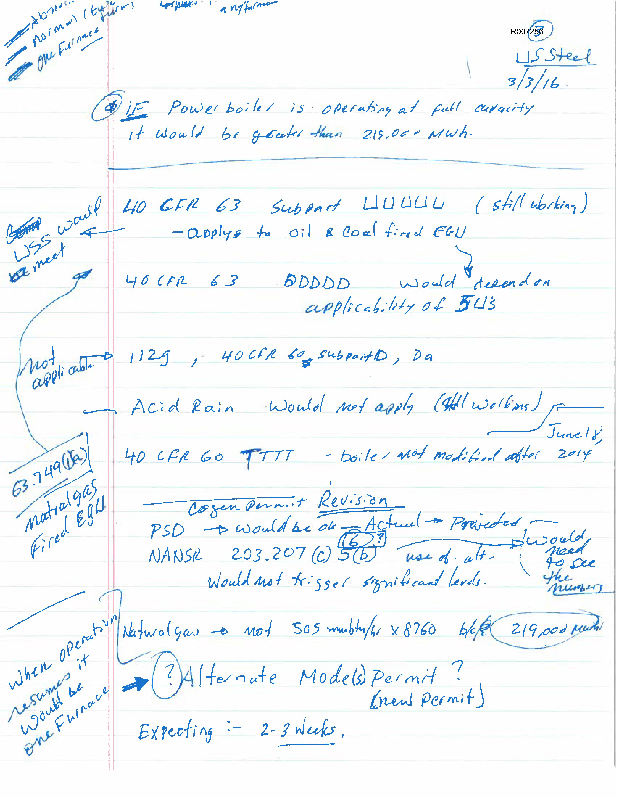 normal (
one Furnace
R001256
3
US Steel
3/3/16.
* IF Power boiler is operating at full capacity
it would be greater than 219,000 MWh.
40 CFR 63 Subpart UUUUU (still working)
- applys to oil & coal fired EGU
USS would
meet
40 CFR 63 DDDDD would depend on
applicability of 5U's
not
applicable
112g, 40 CFR 60, subpart D, Da
Acid Rain would not apply (still working)
June 18,
40 CFR 60 TTTT - boiler not modified after 2014
63.749 (
natural gas
Fired EGU
Cogen Permit Revision
PSD → would be ok — Actual → Provided —
(6)?
NANSR 203.207 (c) 5 (b) use of alt. would
need
to see
the
numbers
would not trigger significant levels.
Natural gas → not 505 mmbtu/hr x 8760 b/c 219,000 MWhr
when operation
resumes it
would be
one Furnace
? Alternate Mode(s) Permit ?
(new Permit)
Expecting :- 2-3 weeks.